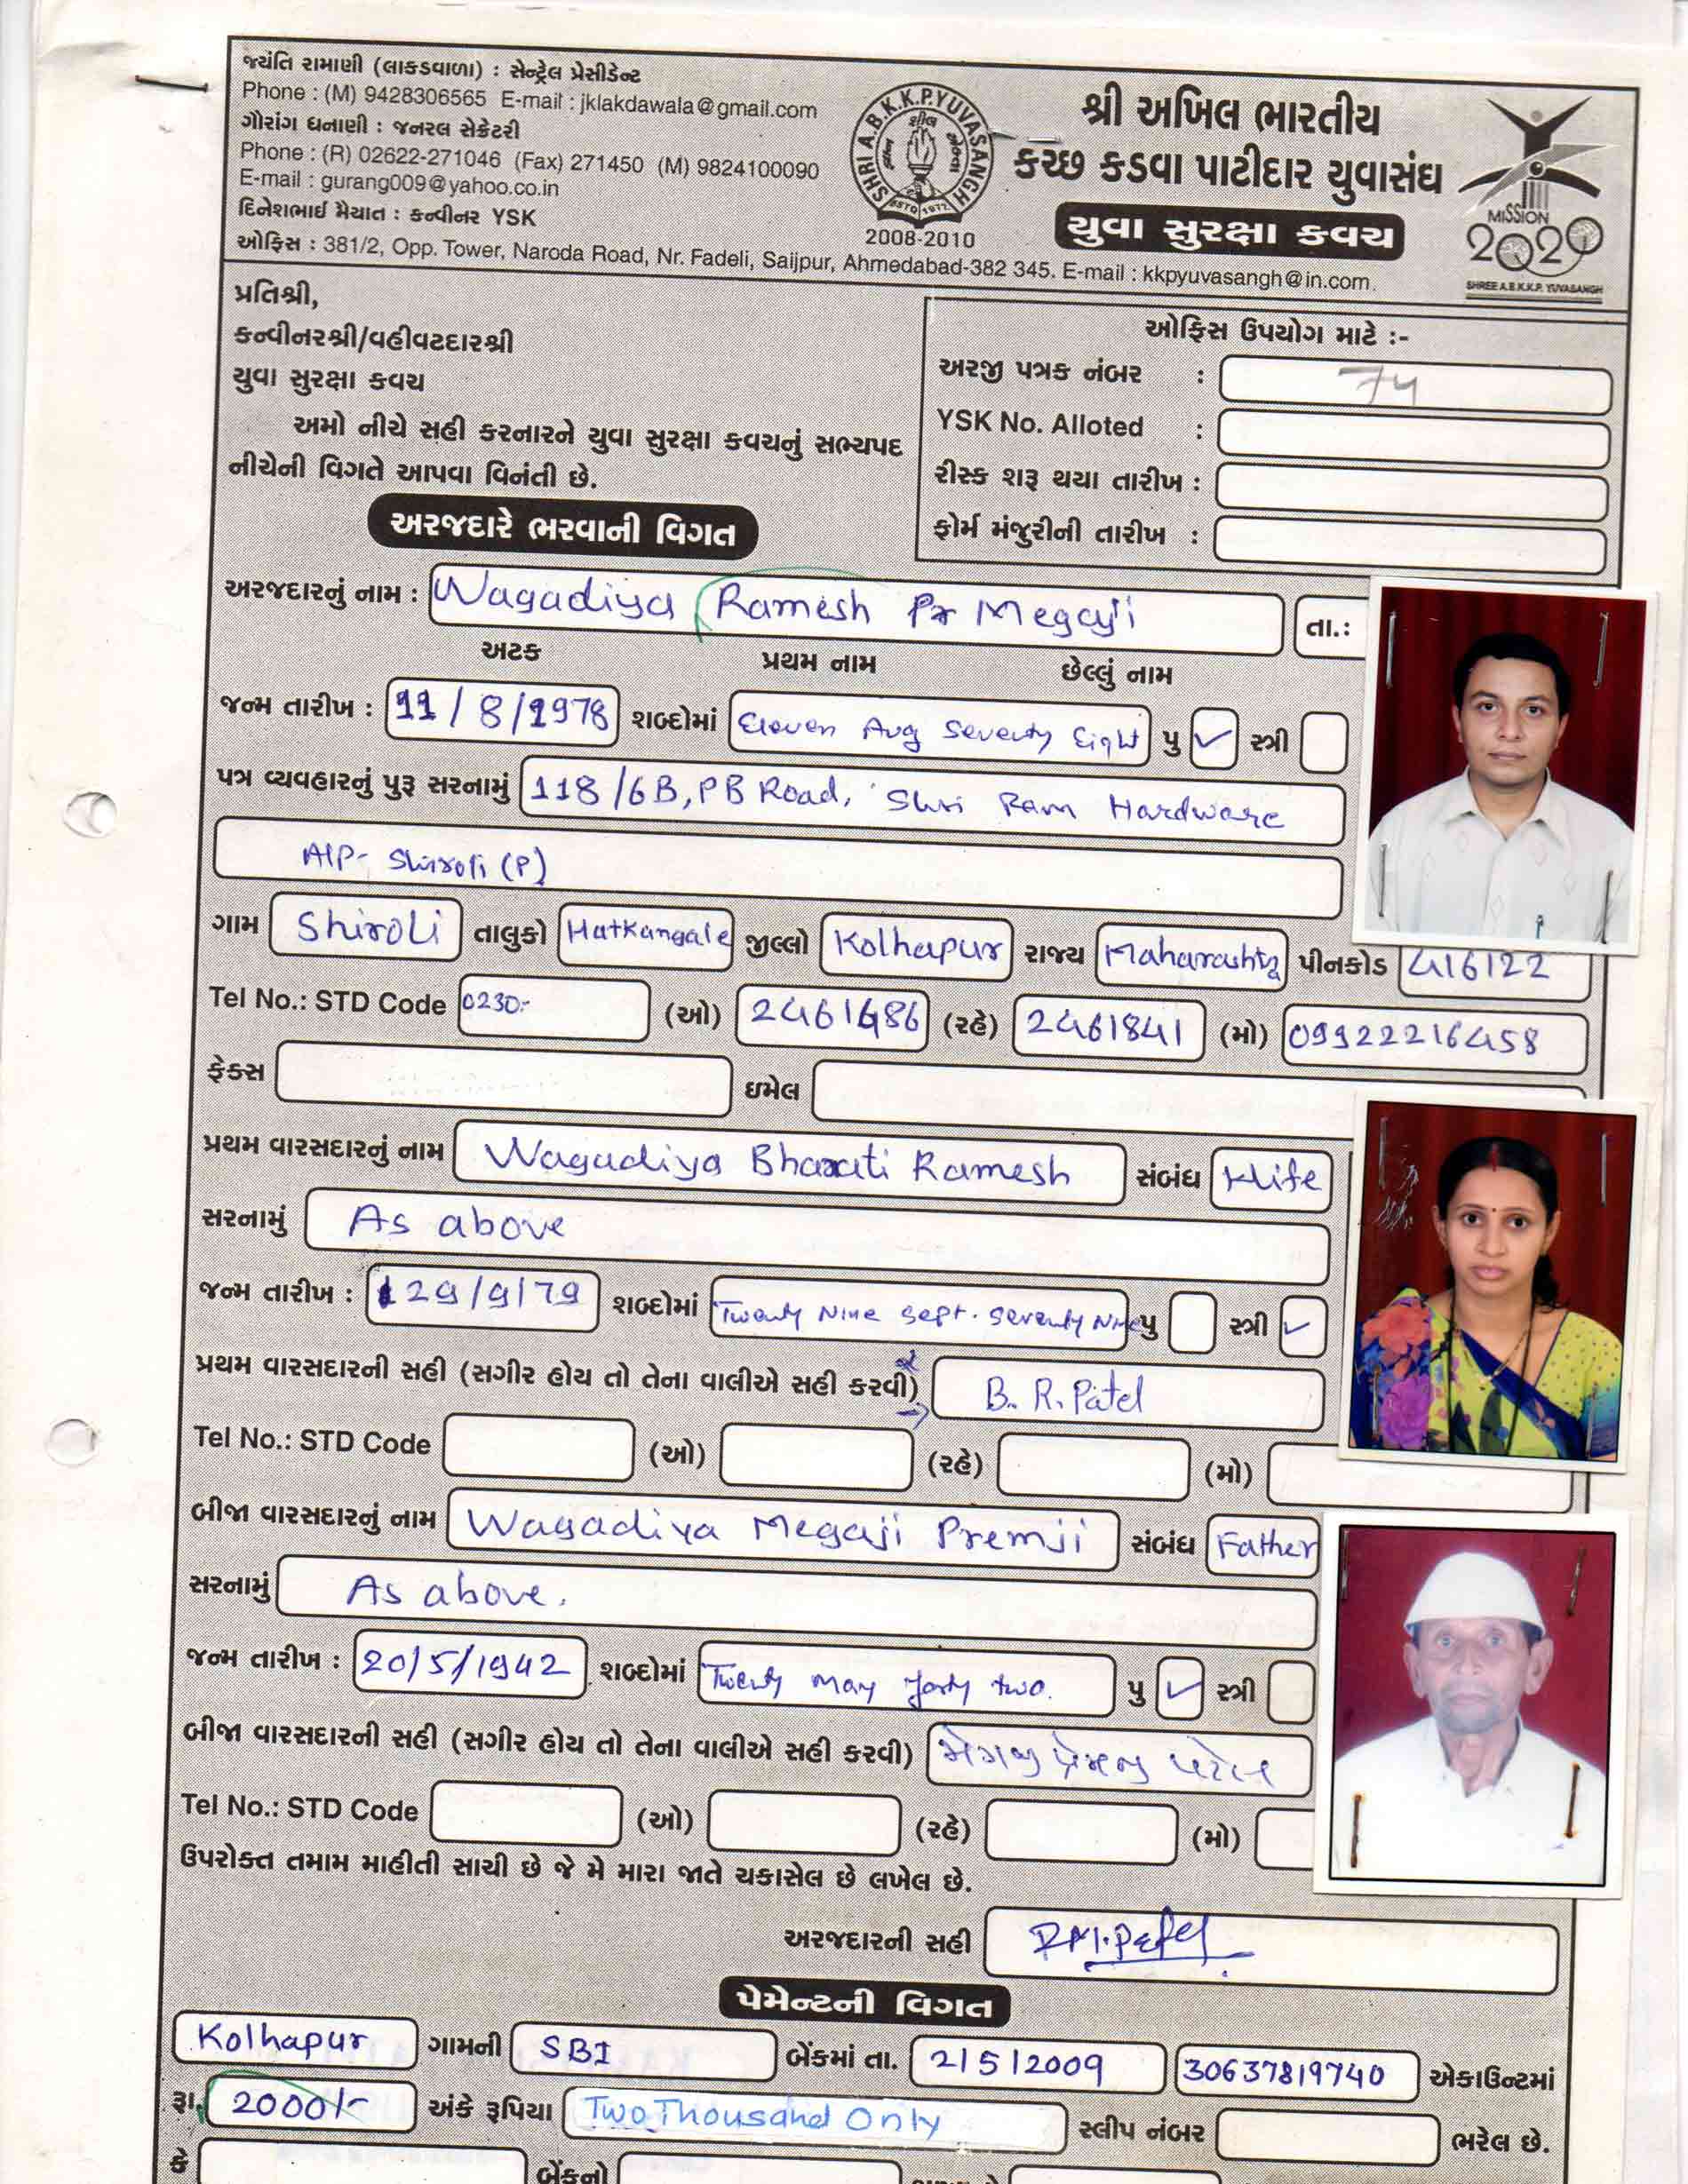 જયંતિ રામાણી (લાકડવાળા) : સેન્ટ્રેલ પ્રેસીડેન્ટ
Phone : (M) 9428306565 E-mail : jklakdawala@gmail.com
ગૌરાંગ ધનાણી : જનરલ સેક્રેટરી
Phone : (R) 02622-271046 (Fax) 271450 (M) 9824100090
E-mail : gurang009@yahoo.co.in
દિનેશભાઈ મૈયાત : કન્વીનર YSK
ઓફિસ : 381/2, Opp. Tower, Naroda Road, Nr. Fadeli, Saijpur, Ahmedabad-382 345. E-mail : kkpyuvasangh@in.com.
SHRI A.B.K.K.P.YUVASANGH
ESTD 1972
2008-2010
શ્રી અખિલ ભારતીય
કચ્છ કડવા પાટીદાર યુવાસંઘ
યુવા સુરક્ષા કવચ
MISSION
2020
SHREE A.B.K.K.P. YUVASANGH
પ્રતિશ્રી,
કન્વીનરશ્રી/વહીવટદારશ્રી
યુવા સુરક્ષા કવચ
અમો નીચે સહી કરનારને યુવા સુરક્ષા કવચનું સભ્યપદ
નીચેની વિગતે આપવા વિનંતી છે.
ઓફિસ ઉપયોગ માટે :-
અરજી પત્રક નંબર : 74
YSK No. Alloted :
રીસ્ક શરૂ થયા તારીખ :
ફોર્મ મંજુરીની તારીખ :
અરજદારે ભરવાની વિગત
અરજદારનું નામ : Wagadiya Ramesh Megaji તા.:
અટક પ્રથમ નામ છેલ્લું નામ
જન્મ તારીખ : 11/8/1978 શબ્દોમાં Eleven Aug Seventy Eight પુ ✓ સ્ત્રી
પત્ર વ્યવહારનું પુરૂ સરનામું 118/6B, PB Road, Shri Ram Hardware
A/P- Shiroli (P)
ગામ Shiroli તાલુકો Hatkangale જીલ્લો Kolhapur રાજ્ય Maharashtra પીનકોડ 416122
Tel No.: STD Code 0230- (ઓ) 2461486 (રહે) 2461841 (મો) 09922216458
ફેક્સ ઇમેલ
પ્રથમ વારસદારનું નામ Wagadiya Bharati Ramesh સંબંધ Wife
સરનામું As above
જન્મ તારીખ : 29/9/79 શબ્દોમાં Twenty Nine Sept. Seventy Nine પુ સ્ત્રી ✓
પ્રથમ વારસદારની સહી (સગીર હોય તો તેના વાલીએ સહી કરવી) B. R. Patel
Tel No.: STD Code (ઓ) (રહે) (મો)
બીજા વારસદારનું નામ Wagadiya Megaji Premji સંબંધ Father
સરનામું As above.
જન્મ તારીખ : 20/5/1942 શબ્દોમાં Twenty may forty two. પુ ✓ સ્ત્રી
બીજા વારસદારની સહી (સગીર હોય તો તેના વાલીએ સહી કરવી) મેગજી પ્રેમજી પટેલ
Tel No.: STD Code (ઓ) (રહે) (મો)
ઉપરોક્ત તમામ માહીતી સાચી છે જે મે મારા જાતે ચકાસેલ છે લખેલ છે.
અરજદારની સહી R.M.Patel
પેમેન્ટની વિગત
Kolhapur ગામની SBI બેંકમાં તા. 2/5/2009 30637819740 એકાઉન્ટમાં
રૂા. 2000/- અંકે રૂપિયા Two Thousand Only સ્લીપ નંબર ભરેલ છે.
કે બેંકનો